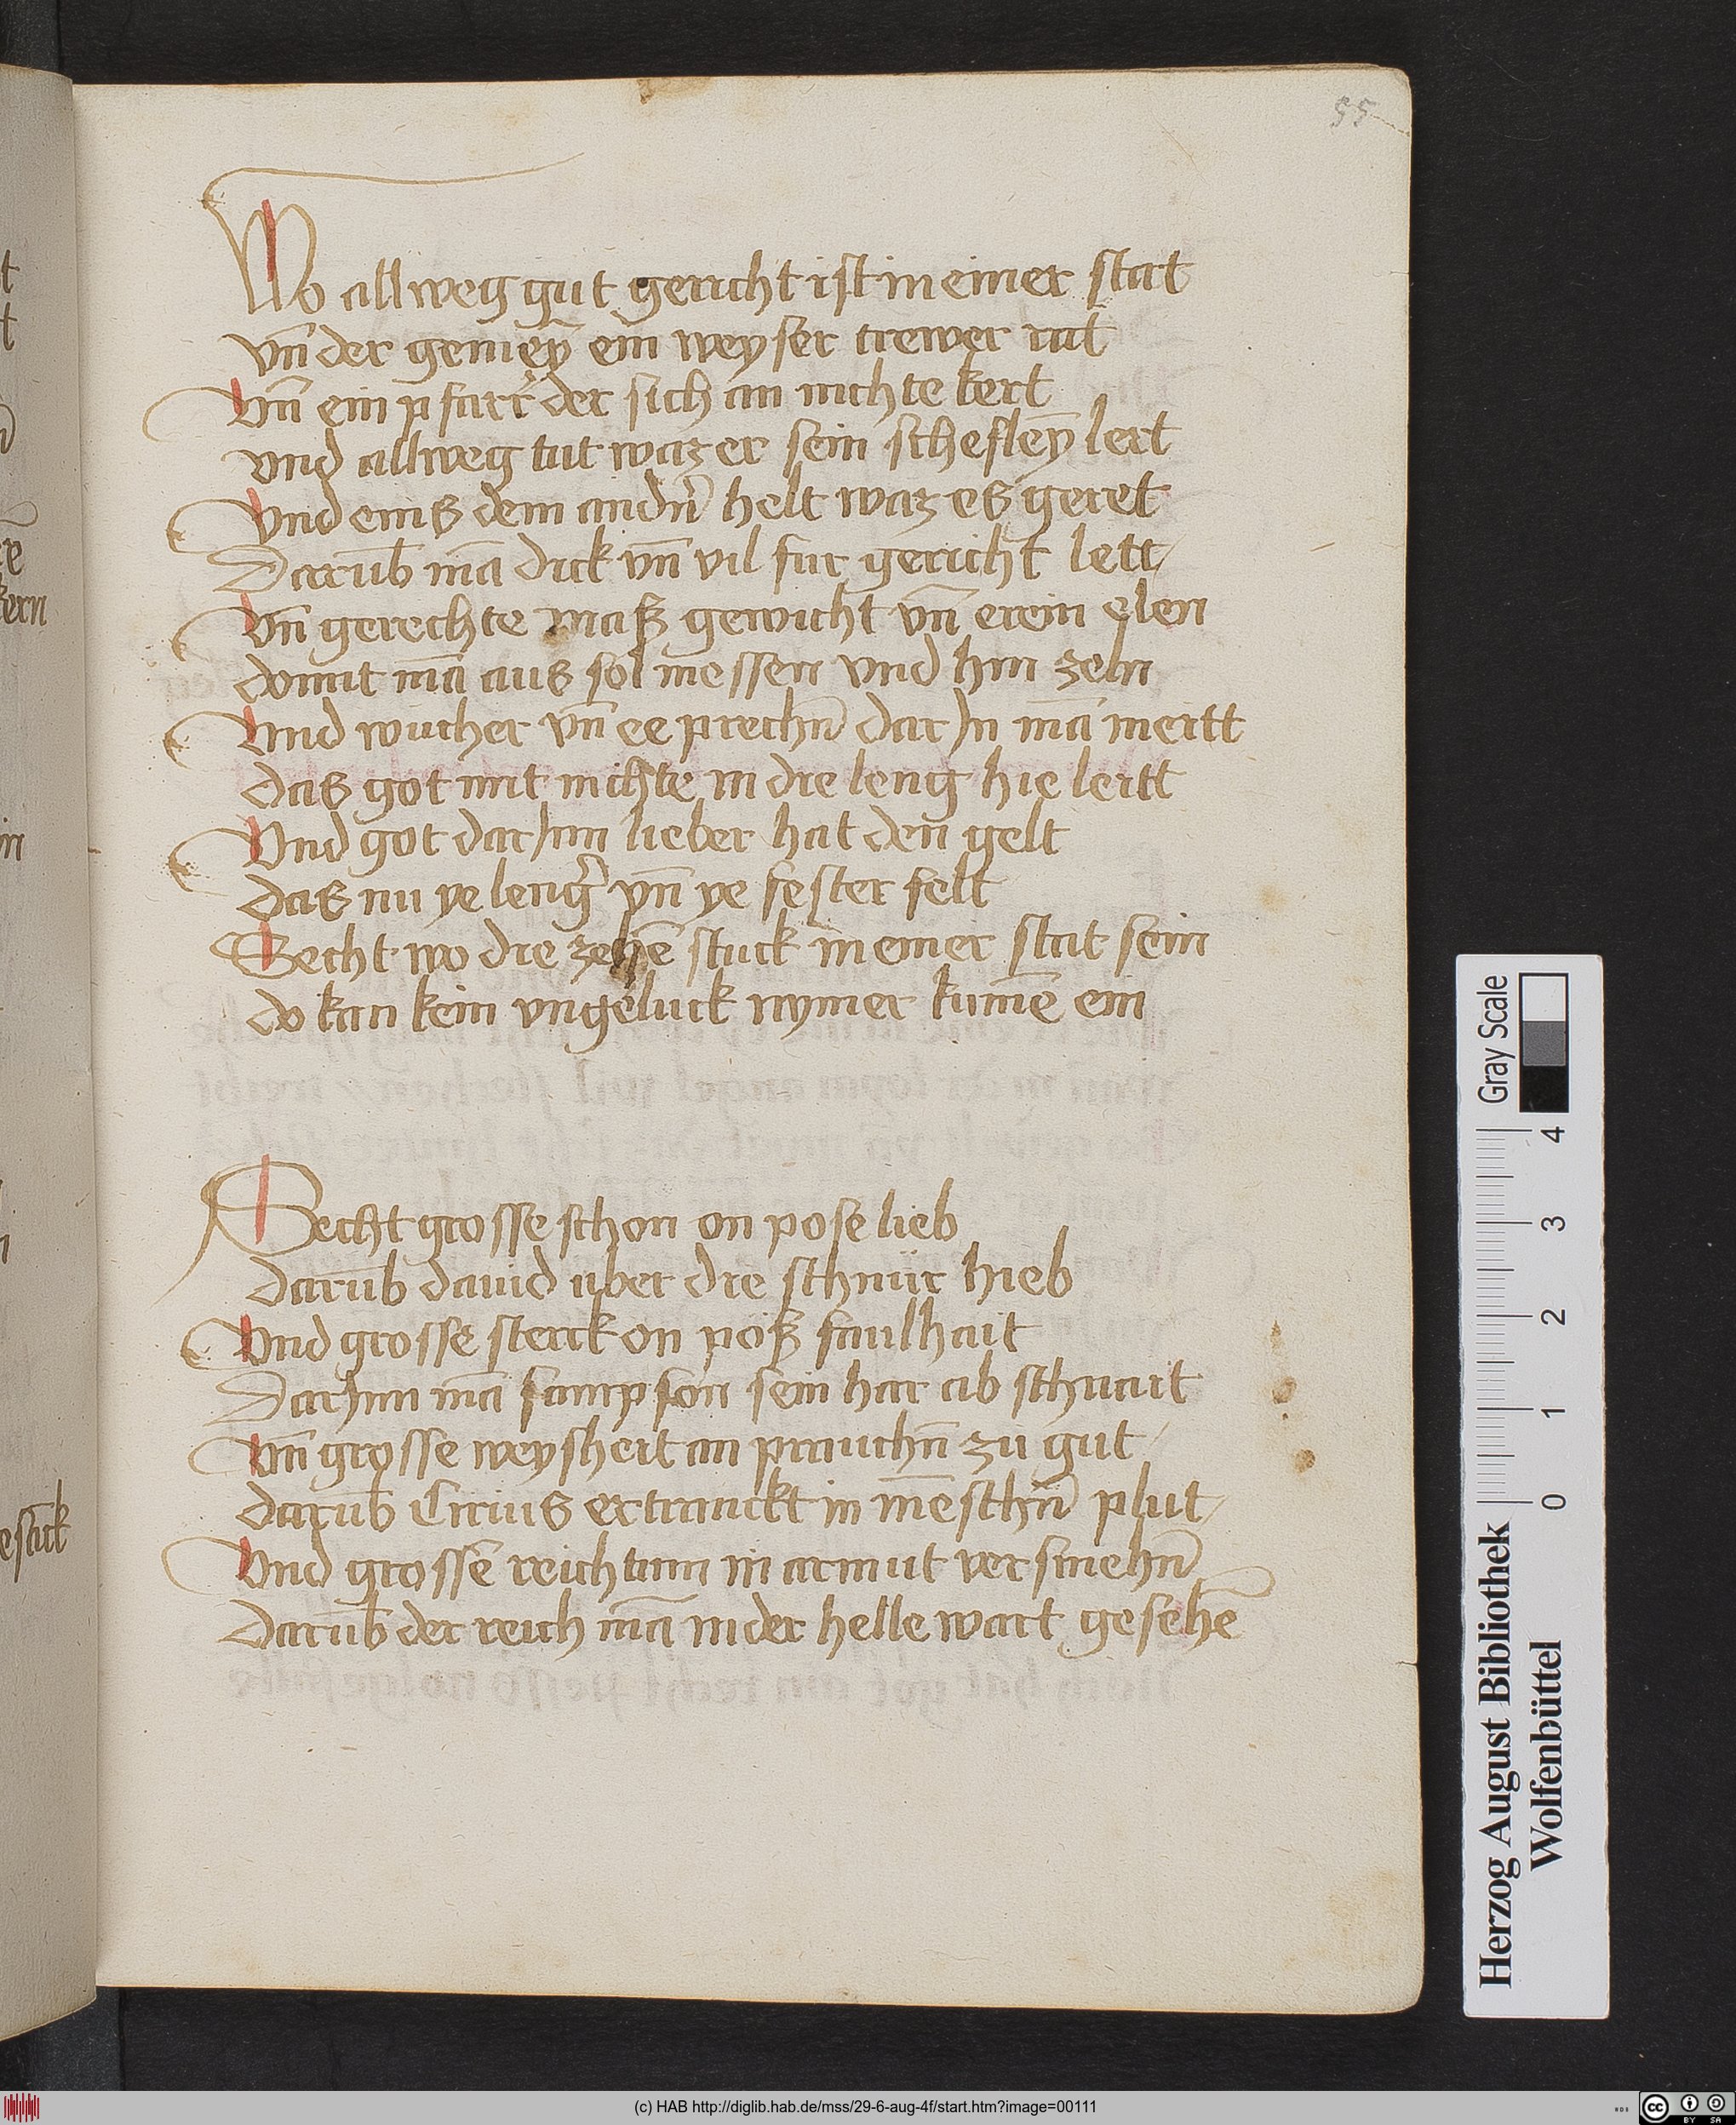 55
Wo allweg gut gericht ist in einer stat
vn̄ der gemeȳ ein weyser trewer rat
Vn̄ ein pfarr̓ der sich an nichte kert
vnd allweg tut waz er sein schefleȳ lert
Vnd eins dem andn̓ helt waz es geret
Darūb mā dick vn̄ vil fur gericht lett
Vn̄ gerechte maß gewicht vn̄ erein elen
domit mā aus sol messen vnd hin zeln
Vnd wucher vn̄ ee prechn̄ dar jn mā meitt
das got mit nichte in die leng hie leitt
Vnd got dar jnn lieber hat den gelt
das nu ye leng̓ vn̄ ye fester felt
Secht wo die zehē stuck in einer stat sein
do kan kein vngeluck nymer kumē ein
Secht grosse schon on pose lieb
darūb dauid uber die schnur hieb
Vnd grosse sterck on poß faulhait
Dar jnn mā sampson sein har ab schnait
Vn̄ grosse weysheit an prauchn̄ zu gut
darūb Cirius ertranckt in mēschn̄ plut
Vnd grossē reichtum in armut versmehn̄
darūb der reich mā in der helle wart gesehē
Gray Scale
0 1 2 3 4
Herzog August Bibliothek
Wolfenbüttel
(c) HAB http://diglib.hab.de/mss/29-6-aug-4f/start.htm?image=00111